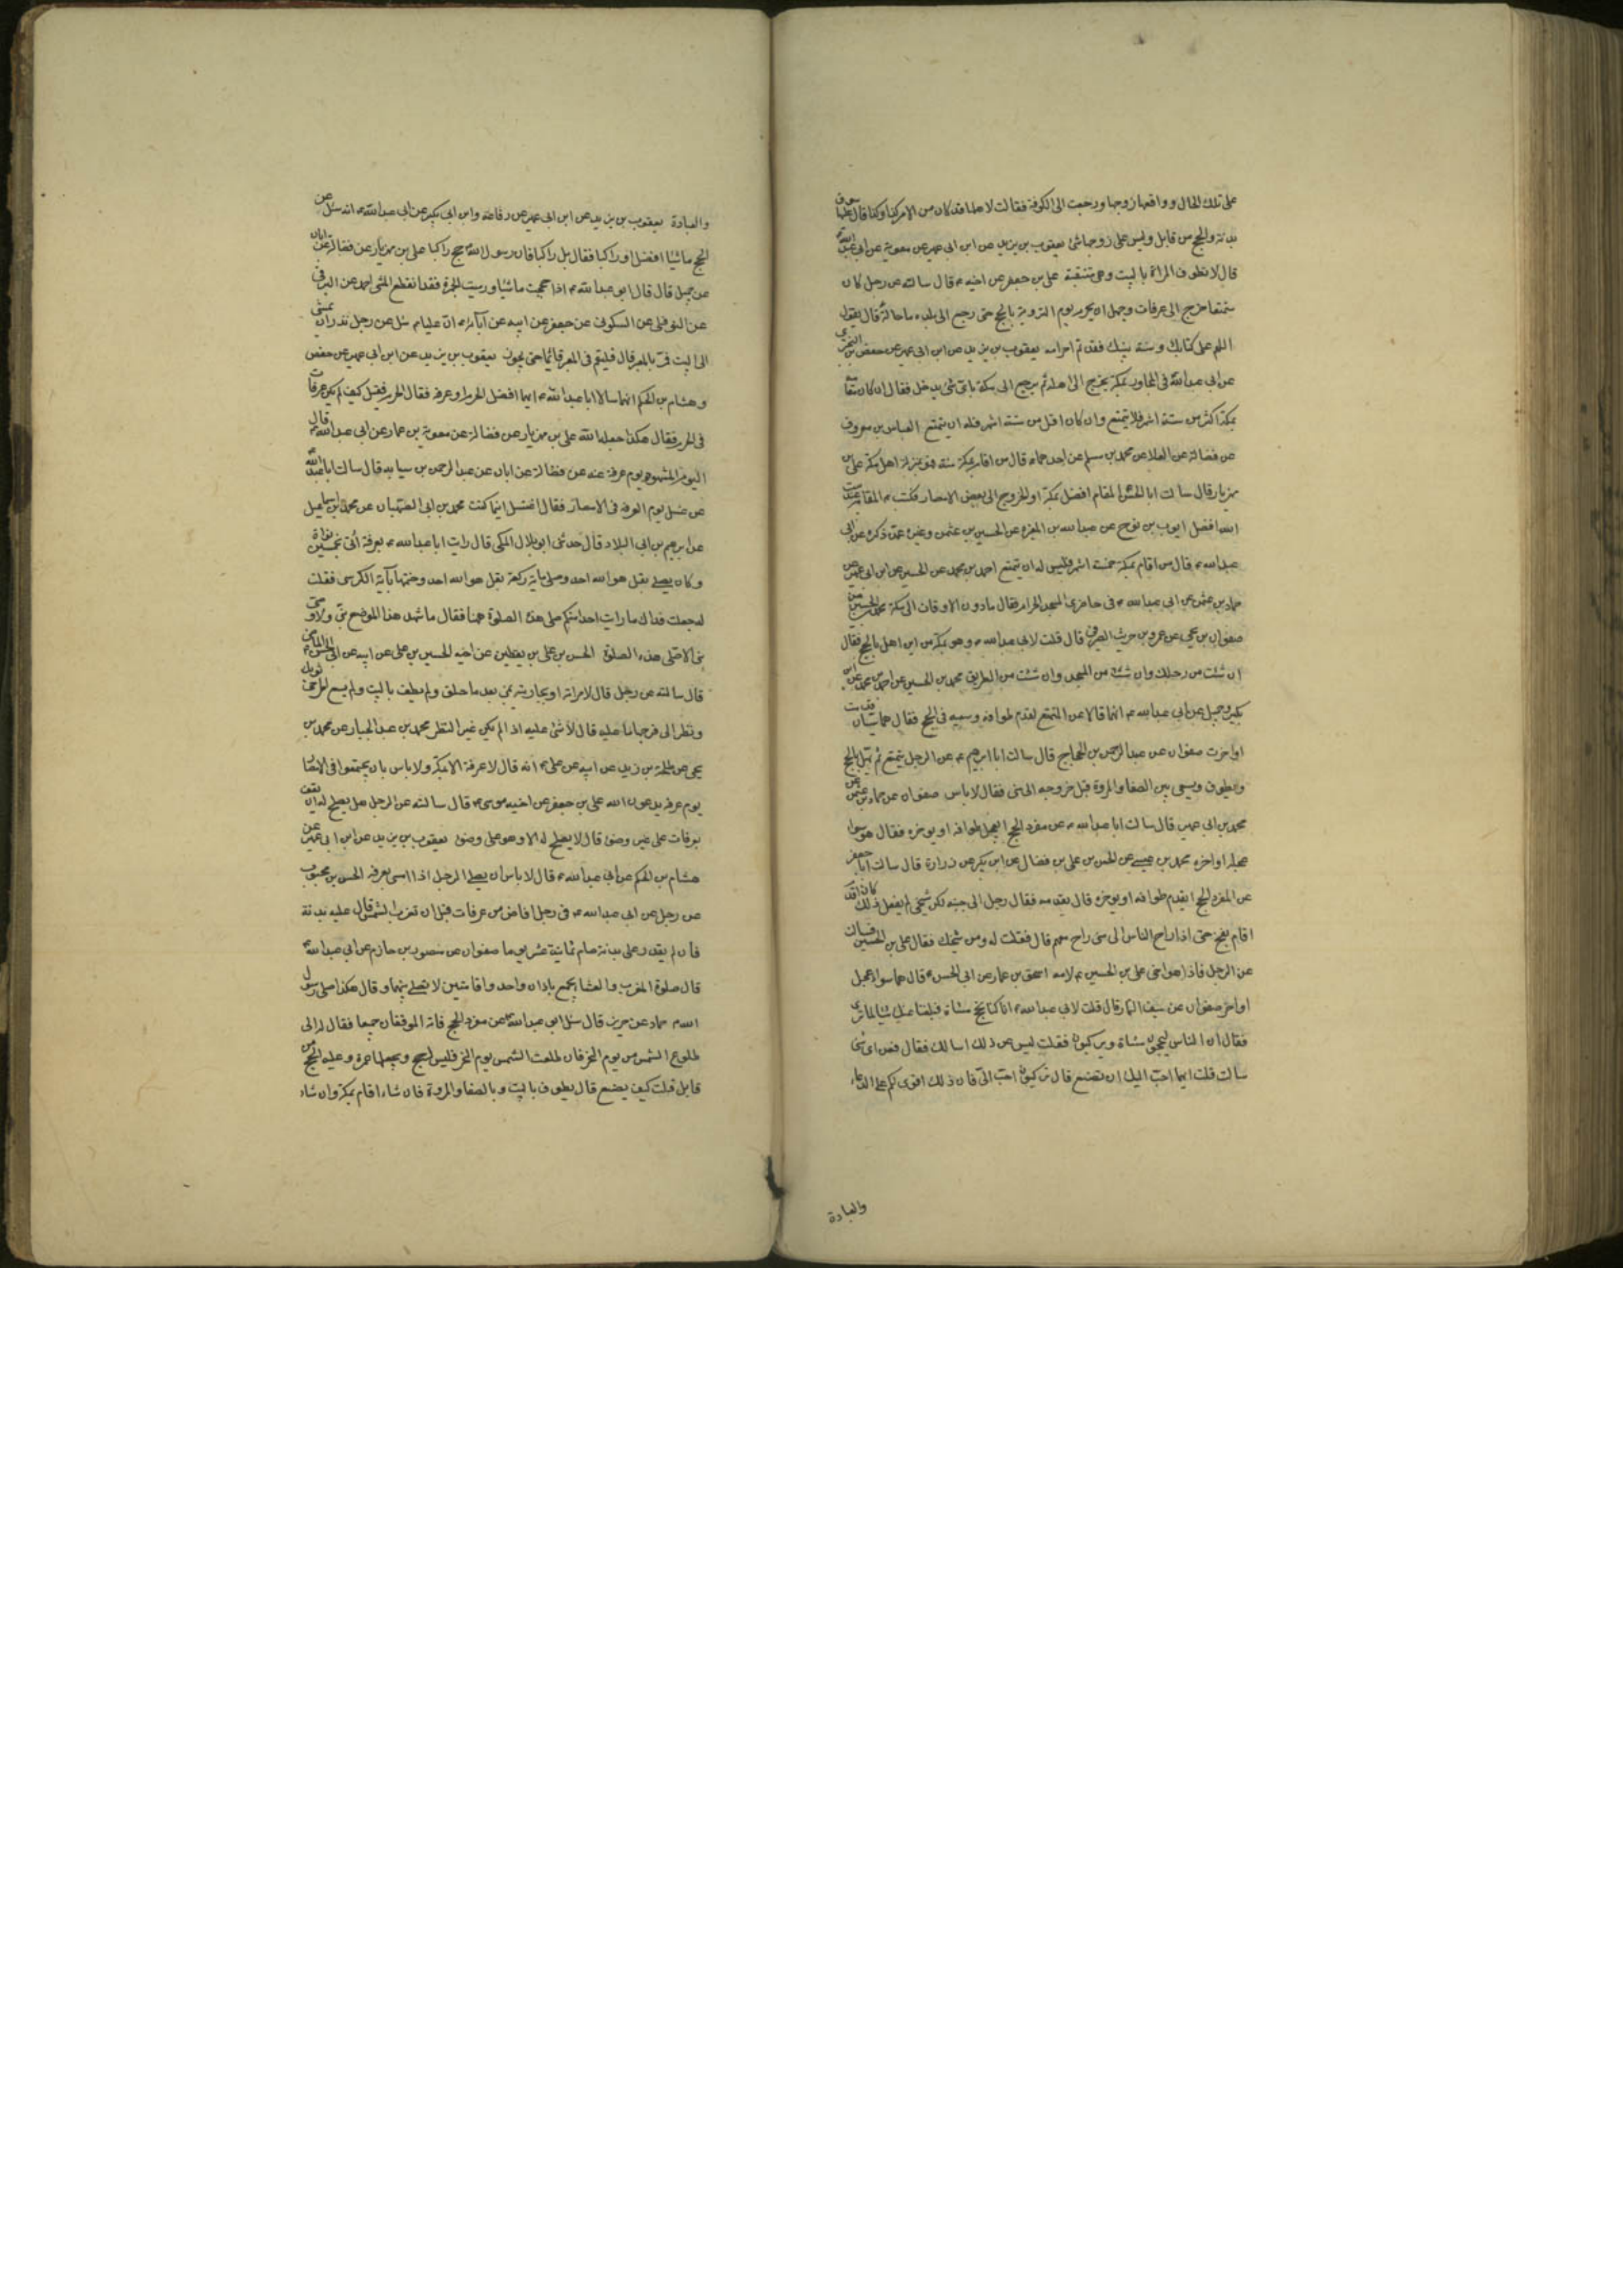 على تلك الحال وواقعها زوجها ورجعت الى الكوفة فقالت لاهلها قد كان من الامر كذا وكذا قال عليها سوق
بدنة والحج من قابل وليس على زوجها شئ يعقوب بن يزيد عن ابن ابى عمير عن معوية عن ابى عبد الله
قال لا تطوف المراة بالبيت وهى متنقبة على بن جعفر عن اخيه ع قال سالته عن رجل كان
متمتعا خرج الى عرفات وجهل ان يحرم يوم التروية بالحج حتى رجع الى بلده ما حاله قال يقول
اللهم على كتابك وسنة نبيك فقد تم احرامه يعقوب بن يزيد عن ابن ابى عمير عن حفص بن البخترى
عن ابى عبد الله فى المجاور بمكة يخرج الى اهله ثم يرجع الى مكة باى شئ يدخل فقال ان كان مقامه
بمكة اكثر من ستة اشهر فلا يتمتع وان كان اقل من ستة اشهر فله ان يتمتع العباس بن معروف
عن فضالة عن العلا عن محمد بن مسلم عن احدهما ع قال من اقام بمكة سنة فهو بمنزلة اهل مكة على بن
مهزيار قال سالت ابا الحسن المقام افضل بمكة او الخروج الى بعض الامصار فكتب ع المقام عند بيت
الله افضل ايوب بن نوح عن عبد الله بن المغيرة عن الحسين بن عثمن وغيره عمن ذكره عن ابى
عبد الله ع قال من اقام بمكة خمسة اشهر فليس له ان يتمتع احمد بن محمد عن الحسين عن ابن ابى عمير عن
حماد بن عثمن عن ابى عبد الله ع فى حاضرى المسجد الحرام فقال ما دون الاوقات الى مكة محمد بن الحسين عن
صفوان بن يحيى عن عمرو بن حريث الصيرفى قال قلت لابى عبد الله ع وهو بمكة من اين اهل بالحج فقال
ان شئت من رحلك وان شئت من المسجد وان شئت من الطريق محمد بن الحسين عن احمد بن محمد عن ابن
بكير وجميل عن ابى عبد الله ع انهما قالا عن المتمتع يقدم طوافه وسعيه فى الحج فقال هما سيان قدمت
او اخرت صفوان عن عبد الرحمن بن الحجاج قال سالت ابا ابرهيم ع عن الرجل يتمتع ثم يهل بالحج
ويطوف ويسعى بين الصفا والمروة قبل خروجه الى منى فقال لا باس صفوان عن حماد بن عثمن عن
محمد بن ابى عمير قال سالت ابا عبد الله ع عن مفرد الحج ايعجل طوافه او يوخره فقال هو سواء
عجله او اخره محمد بن عيسى عن الحسن بن على بن فضال عن ابن بكير عن زرارة قال سالت ابا جعفر
عن المفرد للحج ايقدم طوافه او يوخره قال يقدمه فقال رجل الى جنبه لكن شيخى لم يفعل ذلك كان اذا قدم
اقام بفخ حتى اذا راح الناس الى منى راح معهم قال فقلت له ومن شيخك فقال على بن الحسين فسالت
عن الرجل فاذا هو اخى على بن الحسين ع لامه اسحق بن عمار عن ابى الحسن ع قال هما سواء عجل
او اخر صفوان عن سيف التمار قال قلت لابى عبد الله ع انا كنا نحج مشاة فبلغنا عنك شيئا ما ترى
فقال ان الناس ليحجون مشاة ويركبون فقلت ليس عن ذلك اسالك فقال فعن اى شئ
سالت قلت ايهما احب اليك ان نصنع قال تركبون احب الى فان ذلك اقوى لكم على الدعاء
والعبادة
والعبادة يعقوب بن يزيد عن ابن ابى عمير عن رفاعة وابن ابى بكير عن ابى عبد الله ع انه سئل عن
الحج ماشيا افضل او راكبا فقال بل راكبا فان رسول الله حج راكبا على بن مهزيار عن فضالة عن ابان
عن جميل قال قال ابو عبد الله ع اذا حججت ماشيا ورميت الجمرة فقد انقطع المشى احمد عن البرقى
عن النوفلى عن السكونى عن جعفر عن ابيه عن آبائه ع ان عليا ع سئل عن رجل نذر ان يمشى
الى البيت فمر بالمعبر قال فليقم فى المعبر قائما حتى يجوز يعقوب بن يزيد عن ابن ابى عمير عن حفص
وهشام بن الحكم انهما سالا ابا عبد الله ع ايما افضل الحرم او عرفة فقال الحرم فقيل كيف لم يكن عرفات
فى الحرم فقال هكذا جعلها الله على بن مهزيار عن فضالة عن معوية بن عمار عن ابى عبد الله ع قال
اليوم المشهود يوم عرفة عنه عن فضالة عن ابان عن عبد الرحمن بن سيابه قال سالت ابا عبد الله
عن غسل يوم العرفة فى الامصار فقال اغتسل اينما كنت محمد بن ابى الصهبان عن محمد بن اسماعيل
عن ابرهيم بن ابى البلاد قال حدثنى ابو بلال المكى قال رايت ابا عبد الله ع بعرفة اتى بخمسين نواة
وكان يصلى بقل هو الله احد وصلى ماية ركعة بقل هو الله احد وختمها بآية الكرسى فقلت
له جعلت فداك ما رايت احدا منكم صلى هذه الصلوة ههنا فقال ما شهد هذا الموضع نبى ولا وصى
نبى الا صلى هذه الصلوة الحسن بن على بن يقطين عن اخيه الحسين بن على عن ابيه عن ابى الحسن الماضى ع
قال سالته عن رجل قال لامراته او بجاريته بعد ما حلق ولم يطف بالبيت ولم يسع اطرحى ثوبك
ونظر الى فرجها ما عليه قال لا شئ عليه اذا لم يكن غير النظر محمد بن عبد الجبار عن محمد بن
يحيى عن طلحة بن زيد عن ابيه عن على ع انه قال لا عرفة الا بمكة ولا باس بان يجتمعوا فى الامصار
يوم عرفة يدعون الله على بن جعفر عن اخيه موسى ع قال سالته عن الرجل هل يصلح له ان يقف
بعرفات على غير وضوء قال لا يصلح له الا وهو على وضوء يعقوب بن يزيد عن ابن ابى عمير عن
هشام بن الحكم عن ابى عبد الله ع قال لا باس ان يصلى الرجل اذا امسى بعرفة الحسن بن محبوب
عن رجل عن ابى عبد الله ع فى رجل افاض من عرفات قبل ان تغرب الشمس قال عليه بدنة
فان لم يقدر على بدنة صام ثمانية عشر يوما صفوان عن منصور بن حازم عن ابى عبد الله ع
قال صلوة المغرب والعشا بجمع باذان واحد واقامتين لا تصلى بينهما وقال هكذا صلى رسول
الله ص حماد عن حريز قال سئل ابو عبد الله ع عن مفرد الحج فاته الموقفان جميعا فقال له الى
طلوع الشمس من يوم النحر فان طلعت الشمس يوم النحر فليس له حج ويجعلها عمرة وعليه الحج من
قابل قلت كيف يصنع قال يطوف بالبيت وبالصفا والمروة فان شاء اقام بمكة وان شاء